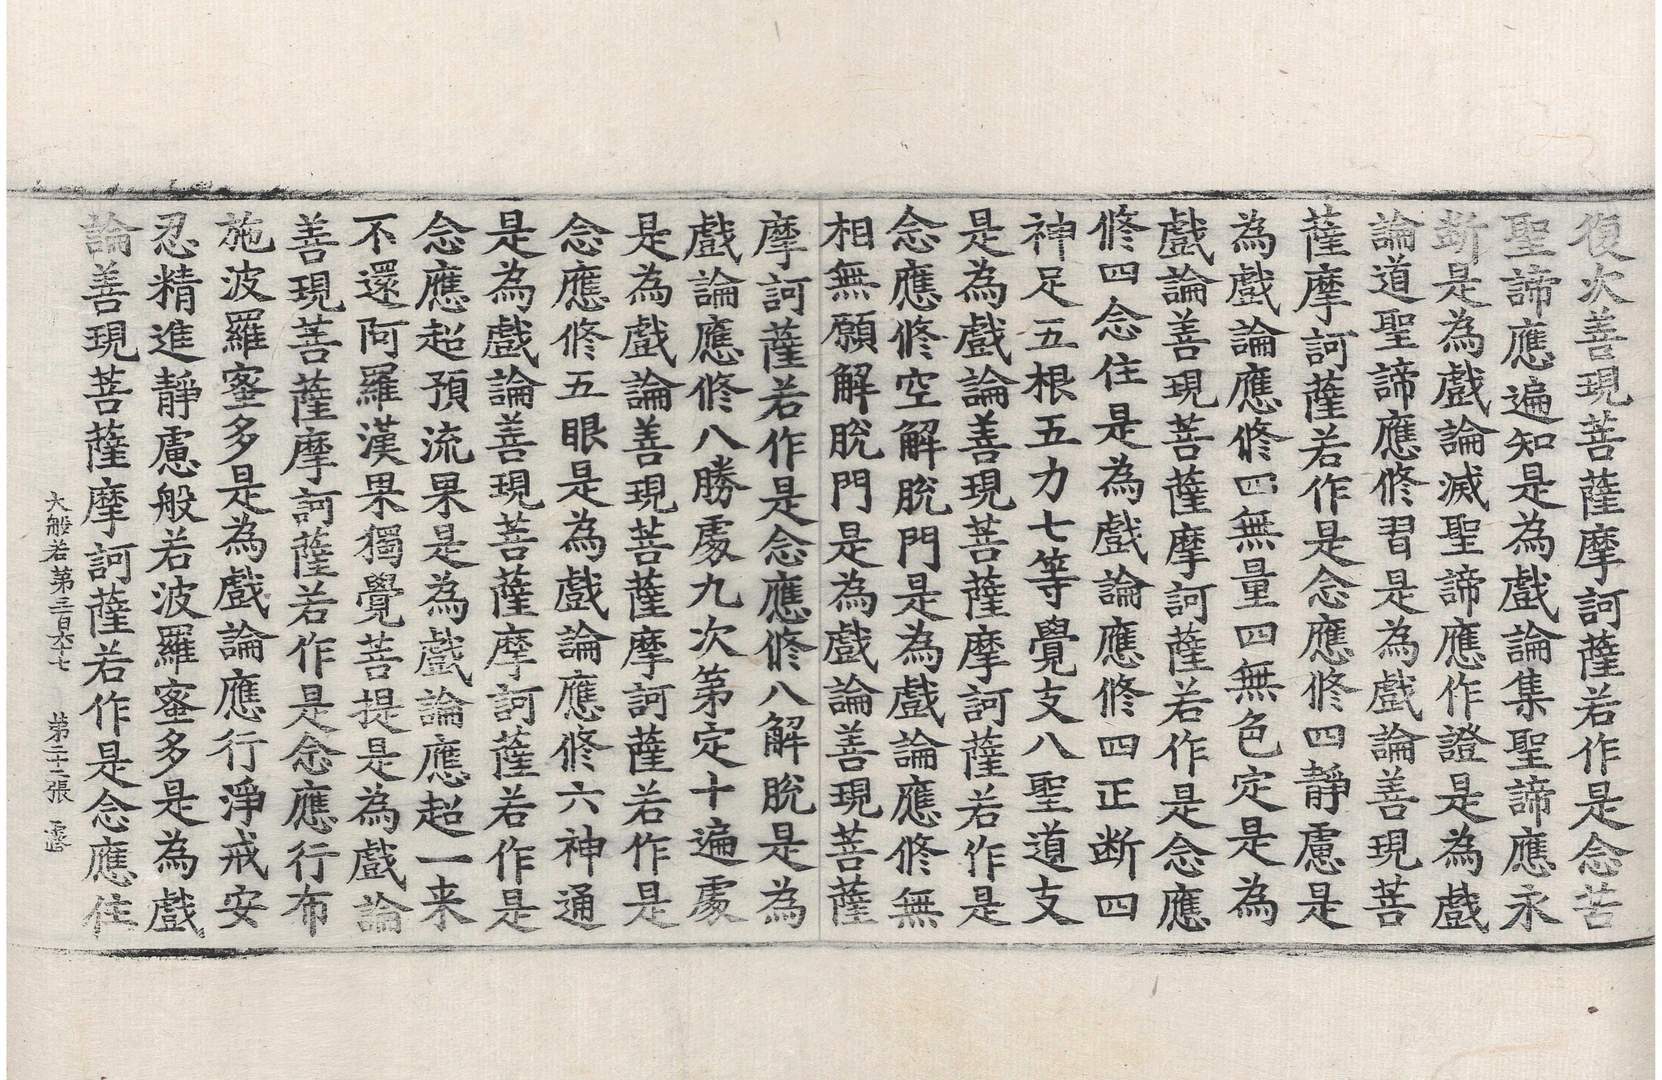 復次善現菩薩摩訶薩若作是念苦
聖諦應遍知是為戲論集聖諦應永
斷是為戲論滅聖諦應作證是為戲
論道聖諦應修習是為戲論善現菩
薩摩訶薩若作是念應修四靜慮是
為戲論應修四無量四無色定是為
戲論善現菩薩摩訶薩若作是念應
修四念住是為戲論應修四正斷四
神足五根五力七等覺支八聖道支
是為戲論善現菩薩摩訶薩若作是
念應修空解脫門是為戲論應修無
相無願解脫門是為戲論善現菩薩
摩訶薩若作是念應修八解脫是為
戲論應修八勝處九次第定十遍處
是為戲論善現菩薩摩訶薩若作是
念應修五眼是為戲論應修六神通
是為戲論善現菩薩摩訶薩若作是
念應超預流果是為戲論應超一来
不還阿羅漢果獨覺菩提是為戲論
善現菩薩摩訶薩若作是念應行布
施波羅蜜多是為戲論應行淨戒安
忍精進靜慮般若波羅蜜多是為戲
論善現菩薩摩訶薩若作是念應住
大般若第三百六十七 第二十二張